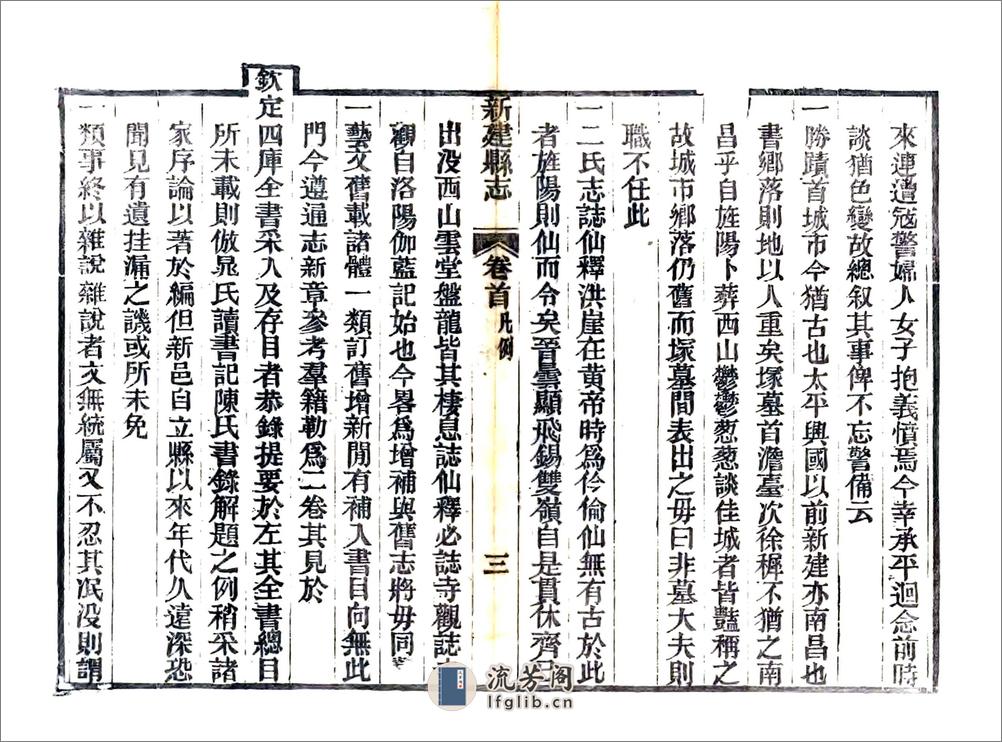 來連遭寇警婦人女子抱義憤焉今幸承平迴念前時
談猶色變故總叙其事俾不忘警備云
一勝蹟首城市今猶古也太平興國以前新建亦南昌也
書鄉落則地以人重矣塚墓首澹臺次徐穉不猶之南
昌乎自旌陽卜葬西山鬱鬱葱葱談佳城者皆豔稱之
故城市鄉落仍舊而塚墓間表出之毋曰非墓大夫則
職不任此
一二氏志誌仙釋洪崖在黄帝時爲伶倫仙無有古於此
者旌陽則仙而令矣晉曇顯飛錫雙嶺自是貫休齊己
新建縣志 卷首 凡例 三
出没西山雲堂盤龍皆其棲息誌仙釋必誌寺觀誌
觀自洛陽伽藍記始也今畧爲增補與舊志將毋同
一藝文舊載諸體一類訂舊增新間有補入書目向無此
門今遵通志新章參考羣籍勒爲二卷其見於
欽定四庫全書采入及存目者恭錄提要於左其全書總目
所未載則倣晁氏讀書記陳氏書錄解題之例稍采諸
家序論以著於編但新邑自立縣以來年代久遠深恐
聞見有遺挂漏之譏或所未免
一類事終以雜說雜說者文無統屬又不忍其泯没則謂
流芳阁
lfglib.cn